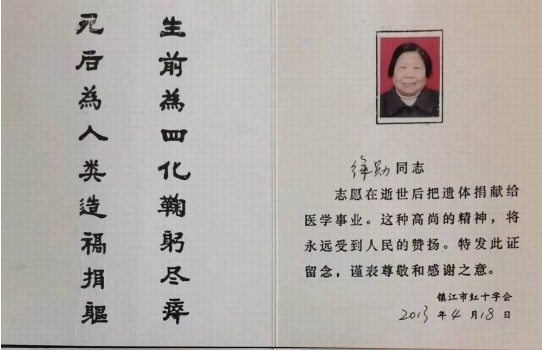 生前為四化鞠躬尽瘁
死后為人类造福捐軀
徐勋同志
志愿在逝世后把遗体捐献给
医学事业。这种高尚的精神，将
永远受到人民的赞扬。特发此证
留念，谨表尊敬和感谢之意。
镇江市红十字会
2013年4月18日